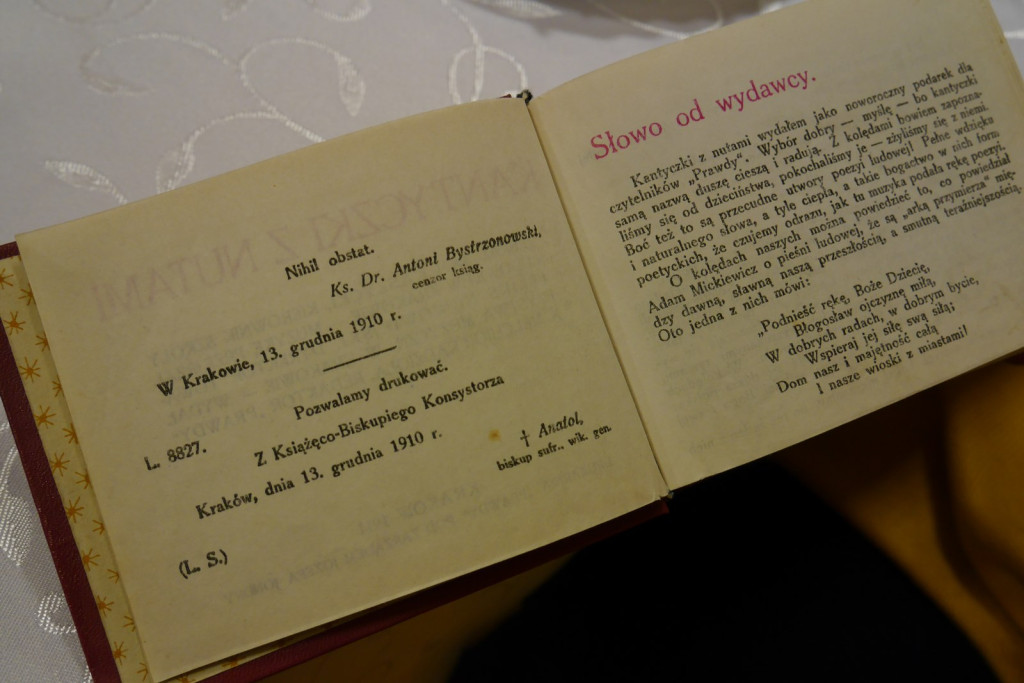 Nihil obstat.
Ks. Dr. Antoni Bystrzonowski,
cenzor ksiąg.
W Krakowie, 13. grudnia 1910 r.
Pozwalamy drukować.
Z Książęco-Biskupiego Konsystorza
L. 8827.
Kraków, dnia 13. grudnia 1910 r.
† Anatol,
biskup sufr., wik. gen.
(L. S.)
Słowo od wydawcy.
Kantyczki z nutami wydałem jako noworoczny podarek dla
czytelników „Prawdy". Wybór dobry — myślę — bo kantyczki
samą nazwą duszę cieszą i radują. Z kolędami bowiem zapozna-
liśmy się od dzieciństwa, pokochaliśmy je — zżyliśmy się z niemi.
Boć też to są przecudne utwory poezyi ludowej! Pełne wdzięku
i naturalnego słowa, a tyle ciepła, a takie bogactwo w nich form
poetyckich, że czujemy odrazu, jak tu muzyka podała rękę poezyi.
O kolędach naszych można powiedzieć to, co powiedział
Adam Mickiewicz o pieśni ludowej, że są „arką przymierza" mię-
dzy dawną, sławną naszą przeszłością, a smutną teraźniejszością.
Oto jedna z nich mówi:
„Podnieść rękę, Boże Dziecię,
Błogosław ojczyznę miłą,
W dobrych radach, w dobrym bycie,
Wspieraj jej siłę swą siłą;
Dom nasz i majętność całą
I nasze wioski z miastami!